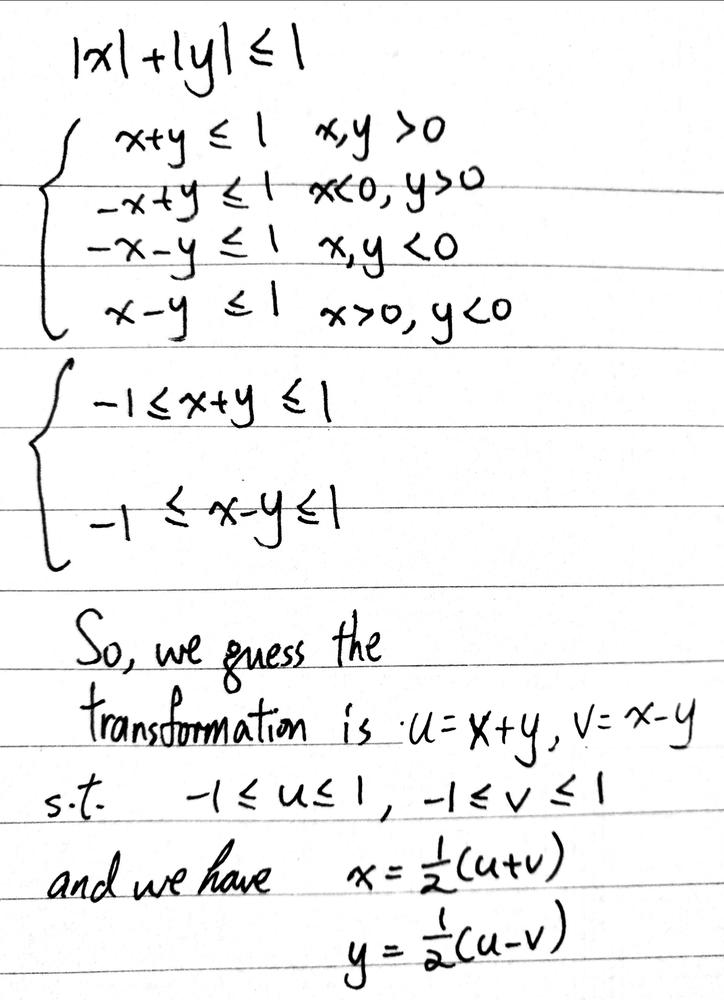 |x|+|y| ≤ 1
x+y ≤ 1 x,y >0
-x+y ≤ 1 x<0, y>0
-x-y ≤ 1 x,y <0
x-y ≤ 1 x>0, y<0
-1 ≤ x+y ≤ 1
-1 ≤ x-y ≤ 1
So, we guess the
transformation is u=x+y, v=x-y
s.t. -1 ≤ u ≤ 1, -1 ≤ v ≤ 1
and we have x = 1/2(u+v)
y = 1/2(u-v)